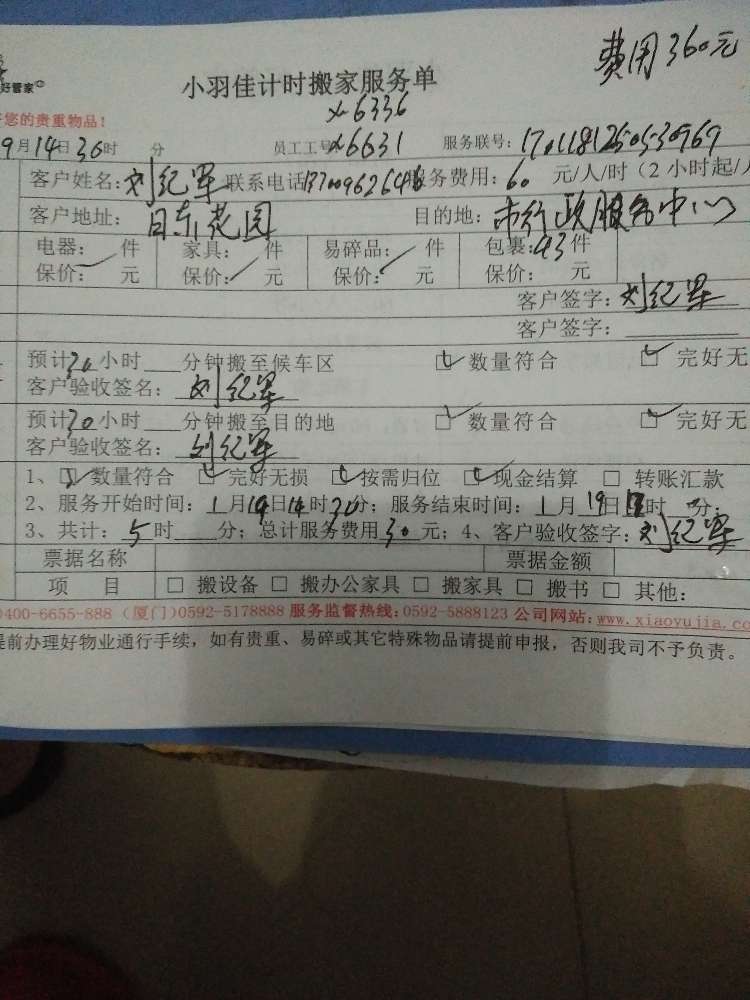 费用360元
好管家
小羽佳计时搬家服务单
x6336
您的贵重物品!
9月14日30时 分 员工工号x6631 服务联号:
客户姓名:刘纪军 联系电话 服务费用:60 元/人/时(2小时起/
客户地址:日东花园 目的地:市行政服务中心
电器: 件 家具: 件 易碎品: 件 包裹:43件
保价: 元 保价: 元 保价: 元 保价: 元
客户签字:刘纪军
客户签字:
预计30小时 分钟搬至候车区 □数量符合 □完好无
客户验收签名:刘纪军
预计30小时 分钟搬至目的地 □数量符合 □完好无
客户验收签名:刘纪军
1、□数量符合 □完好无损 □按需归位 □现金结算 □转账汇款
2、服务开始时间:1月19日14时30分;服务结束时间:1月19日 时 分;
3、共计:5时 分;总计服务费用30元;4、客户验收签字:刘纪军
票据名称 票据金额
项 目 □搬设备□搬办公家具□搬家具□搬书□其他:
0400-6655-888(厦门)0592-5178888 服务监督热线:0592-5888123 公司网站:www.xiaoyujia.co
提前办理好物业通行手续,如有贵重、易碎或其它特殊物品请提前申报,否则我司不予负责。